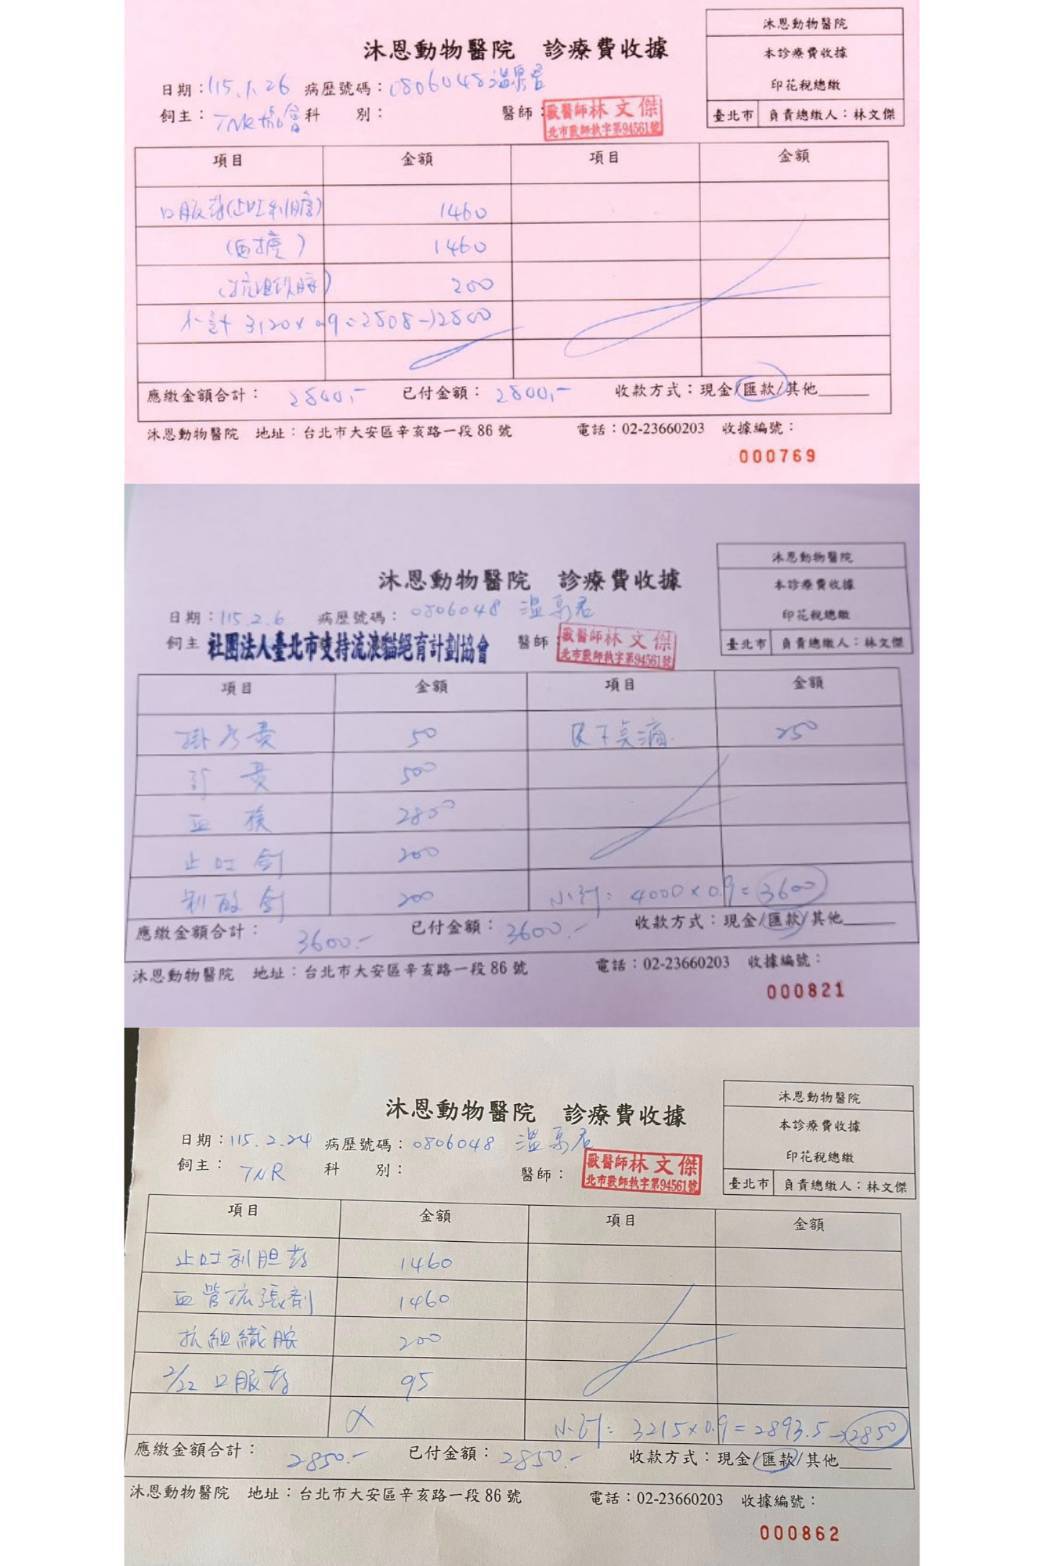 沐恩動物醫院 診療費收據
沐恩動物醫院
本診療費收據
印花稅總繳
臺北市 負責總繳人：林文傑
日期：115.1.26 病歷號碼：0806048 溫泉君
飼主：TNR協會 科 別： 醫師：獸醫師林文傑
北市獸師執字第94561號
項目 金額 項目 金額
口服藥(止吐利膽) 1460
1460
(抗組織胺) 200
小計 3120×0.9=2508→2800
應繳金額合計：2800,- 已付金額：2800,- 收款方式：現金/匯款/其他
沐恩動物醫院 地址：台北市大安區辛亥路一段86號 電話：02-23660203 收據編號：
000769
沐恩動物醫院 診療費收據
沐恩動物醫院
本診療費收據
印花稅總繳
臺北市 負責總繳人：林文傑
日期：115.2.6 病歷號碼：0806048 溫泉君
飼主 社團法人臺北市支持流浪貓絕育計劃協會 醫師 獸醫師林文傑
北市獸師執字第94561號
項目 金額 項目 金額
掛号費 50 皮下点滴 250
診費 500
血檢 2800
止吐劑 200
制酸劑 200 小計：4000×0.9=3600
應繳金額合計：3600.- 已付金額：3600.- 收款方式：現金/匯款/其他
沐恩動物醫院 地址：台北市大安區辛亥路一段86號 電話：02-23660203 收據編號：
000821
沐恩動物醫院 診療費收據
沐恩動物醫院
本診療費收據
印花稅總繳
臺北市 負責總繳人：林文傑
日期：115.2.24 病歷號碼：0806048 溫泉君
飼主：TNR 科 別： 醫師：獸醫師林文傑
北市獸師執字第94561號
項目 金額 項目 金額
止吐利胆藥 1460
血管拡張劑 1460
抗組織胺 200
2/22 口服藥 95
小計：3215×0.9=2893.5→2850
應繳金額合計：2850.- 已付金額：2850.- 收款方式：現金/匯款/其他
沐恩動物醫院 地址：台北市大安區辛亥路一段86號 電話：02-23660203 收據編號：
000862